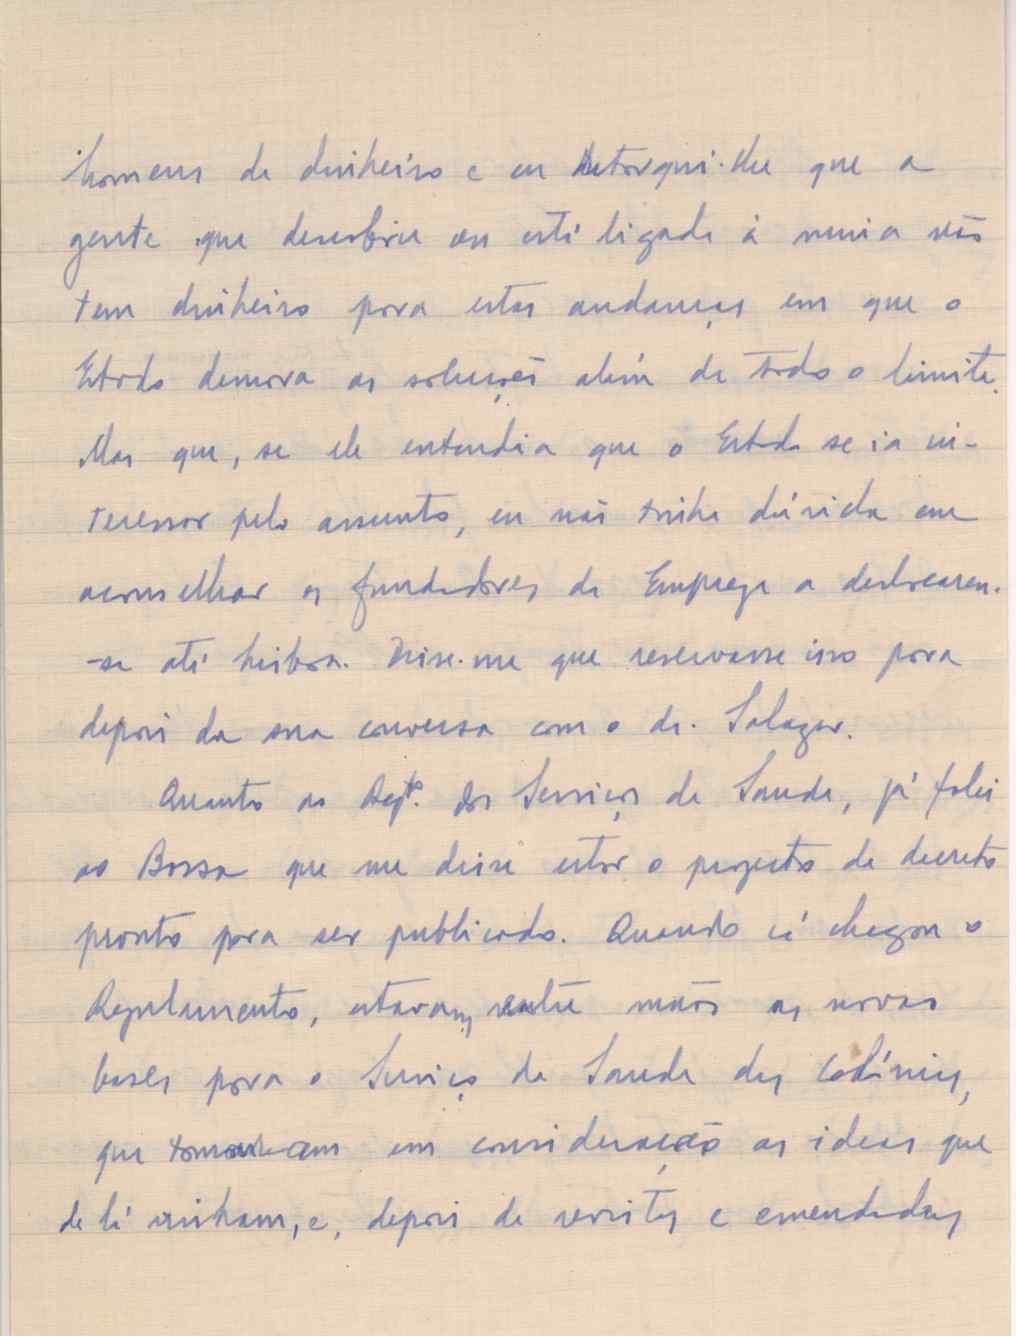 homens de dinheiro e eu retorqui-lhe que a
gente que descobriu ou está ligada à mina não
tem dinheiro para estas andanças em que o
Estado demora as soluções além de todo o limite.
Mas que, se ele entendia que o Estado se ia in-
teressar pelo assunto, eu não tinha dúvida em
aconselhar os fundadores da Empresa a deslocarem-
-se até Lisboa. Disse-me que reservasse isso para
depois da sua conversa com o dr. Salazar.
Quanto ao Regto. dos Serviços de Saude, já falei
ao Bossa que me disse estar o projecto de decreto
pronto para ser publicado. Quando cá chegou o
Regulamento, estavam, entre mãos as novas
bases para o Serviço de Saude das Colónias,
que tomaram em consideração as ideas que
de lá vinham, e, depois de revistas e emendadas